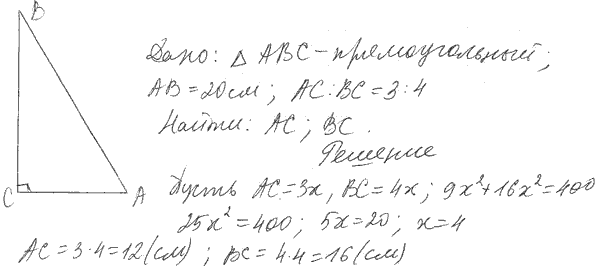 B
Дано: △ ABC – прямоугольный;
AB = 20 см; AC:BC = 3:4
Найти: AC; BC.
Решение
C A Пусть AC = 3x, BC = 4x; 9x² + 16x² = 400
25x² = 400; 5x = 20; x = 4
AC = 3·4 = 12 (см); BC = 4·4 = 16 (см)